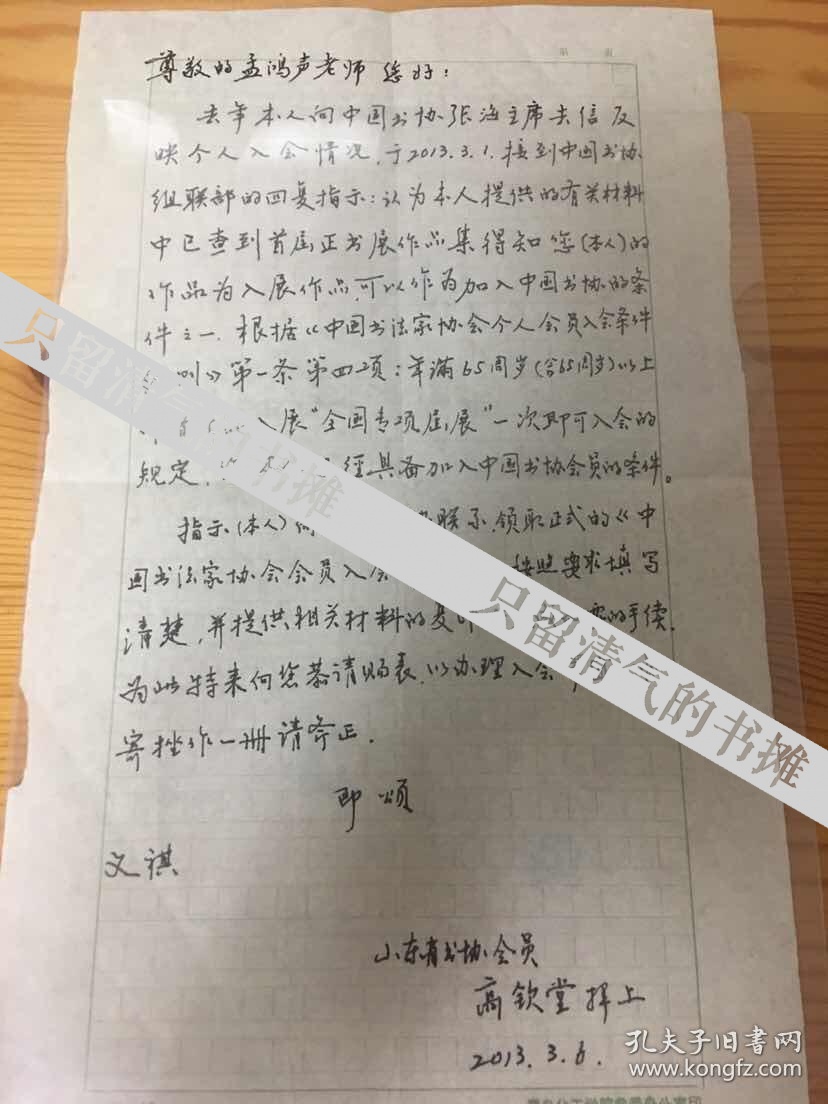 第 页
尊敬的孟鸿声老师 您好：
去年本人向中国书协张海主席去信反
映个人入会情况，于2013.3.1.接到中国书协
组联部的回复指示：认为本人提供的有关材料
中已查到首届正书展作品集得知您(本人)的
作品为入展作品，可以作为加入中国书协的条
件之一．根据《中国书法家协会个人会员入会条件
则》第一条第四项：年满65周岁(含65周岁)以上
入展“全国专项届展”一次即可入会的
规定， 经具备加入中国书协会员的条件。
指示(本人) 联系，领取正式的《中
国书法家协会会员入会 按照要求填写
清楚，并提供相关材料的复印 的手续．
为此特来向您恭请赐表，以办理入会
寄拙作一册请斧正．
即颂
文祺
山东省书协会员
高钦堂拜上
2013.3.6.
只留清气的书摊
只留清气的书摊
孔夫子旧书网
www.kongfz.com